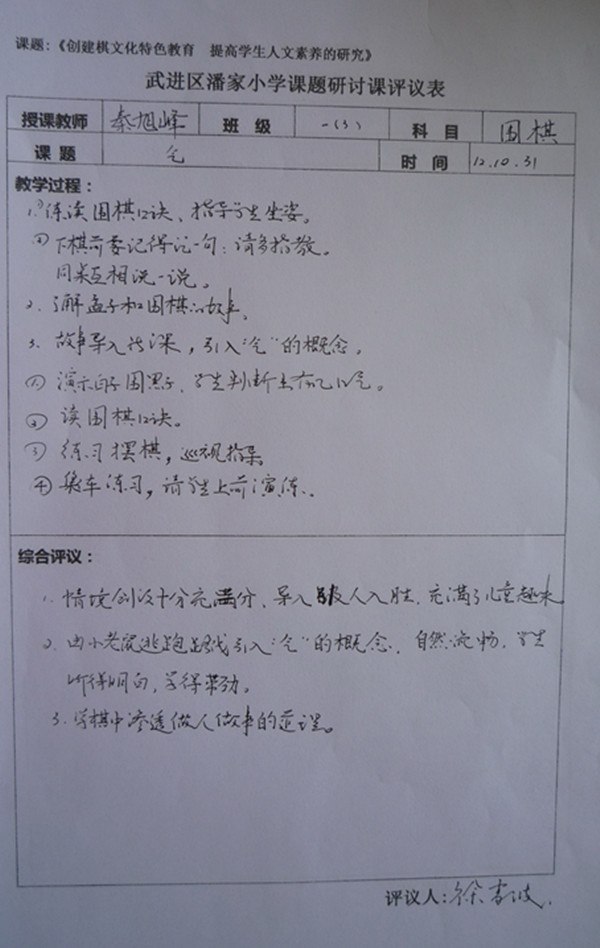 课题：《创建棋文化特色教育 提高学生人文素养的研究》
武进区潘家小学课题研讨课评议表
授课教师 秦旭峰 班 级 一（3） 科 目 围棋
课 题 气 时 间 12.10.31
教学过程：
1.① 练读围棋口诀、指导学生坐姿。
② 下棋前要记得说一句：请多指教。
同桌互相说一说。
2. 了解孟子和围棋的故事。
3. 故事导入新课，引入“气”的概念。
① 演示白子围黑子，学生判断还有几口气。
② 读围棋口诀。
③ 练习摆棋，巡视指导
④ 练习，请学生上前演练。
综合评议：
1. 情境创设十分充满分、导入引人入胜，充满了儿童趣味
2. 由小老鼠逃跑路线引入“气”的概念，自然流畅，学生
听得明白，学得带劲。
3. 学棋中渗透做人做事的道理。
评议人：徐